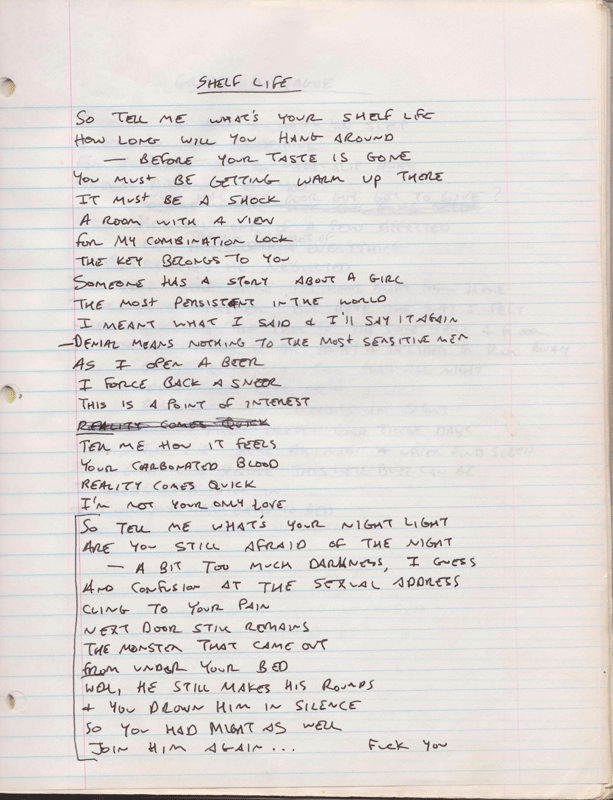 SHELF LIFE
SO TELL ME WHAT'S YOUR SHELF LIFE
HOW LONG WILL YOU HANG AROUND
— BEFORE YOUR TASTE IS GONE
YOU MUST BE GETTING WARM UP THERE
IT MUST BE A SHOCK
A ROOM WITH A VIEW
FOR MY COMBINATION LOCK
THE KEY BELONGS TO YOU
SOMEONE HAS A STORY ABOUT A GIRL
THE MOST PERSISTENT IN THE WORLD
I MEANT WHAT I SAID & I'LL SAY IT AGAIN
— DENIAL MEANS NOTHING TO THE MOST SENSITIVE MEN
AS I OPEN A BEER
I FORCE BACK A SNEER
THIS IS A POINT OF INTEREST
REALITY COMES QUICK
TELL ME HOW IT FEELS
YOUR CARBONATED BLOOD
REALITY COMES QUICK
I'M NOT YOUR ONLY LOVE
SO TELL ME WHAT'S YOUR NIGHT LIGHT
ARE YOU STILL AFRAID OF THE NIGHT
— A BIT TOO MUCH DARKNESS, I GUESS
AND CONFUSION AT THE SEXUAL ADDRESS
CLING TO YOUR PAIN
NEXT DOOR STILL REMAINS
THE MONSTER THAT CAME OUT
FROM UNDER YOUR BED
WELL, HE STILL MAKES HIS ROUNDS
& YOU DROWN HIM IN SILENCE
SO YOU HAD MIGHT AS WELL
JOIN HIM AGAIN... FUCK YOU